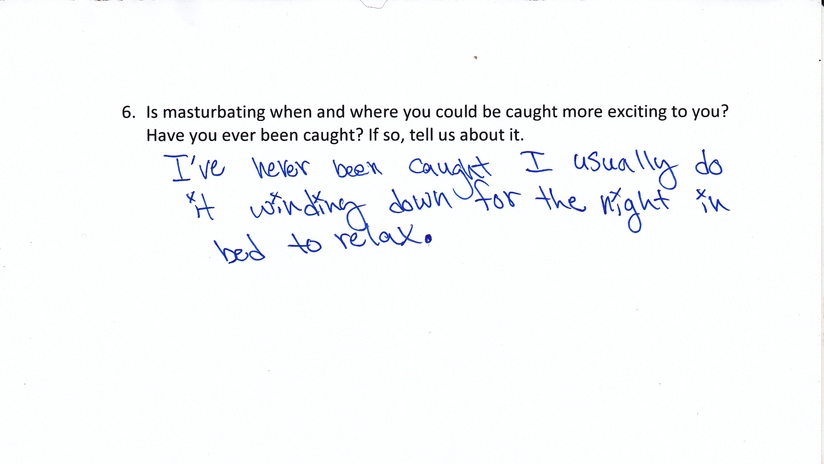 6. Is masturbating when and where you could be caught more exciting to you?
Have you ever been caught? If so, tell us about it.
I've never been caught I usually do
it winding down for the night in
bed to relax.